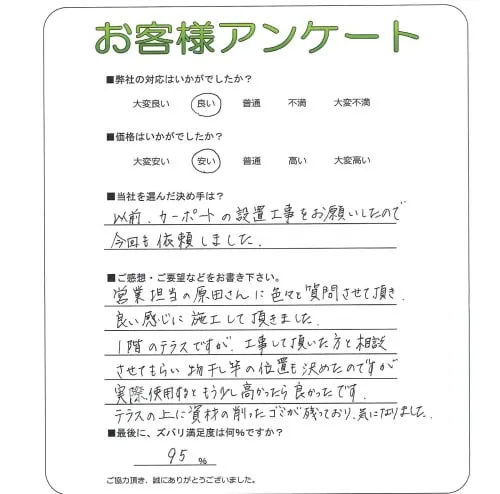 お客様アンケート
■弊社の対応はいかがでしたか?
大変良い 良い 普通 不満 大変不満
■価格はいかがでしたか?
大変安い 安い 普通 高い 大変高い
■当社を選んだ決め手は?
以前、カーポートの設置工事をお願いしたので
今回も依頼しました.
■ご感想・ご要望などをお書き下さい。
営業担当の原田さんに色々と質問させて頂き.
良い感じに施工して頂きました.
1階のテラスですが、工事して頂いた方と相談
させてもらい物干し竿の位置も決めたのですが
実際使用するともう少し高かったら良かったです.
テラスの上に資材の削ったゴミが残っており、気になりました.
■最後に、ズバリ満足度は何%ですか?
95 %
ご協力頂き、誠にありがとうございました。